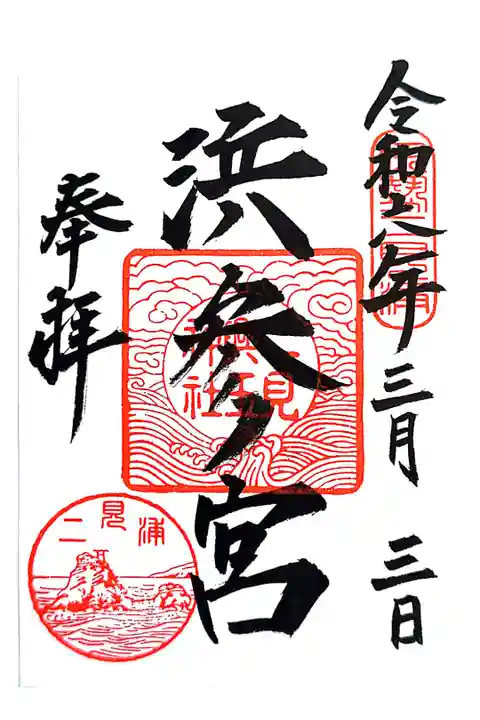 令和六年三月三日
浜参ノ宮
奉拝
二見浦
二見興玉神社